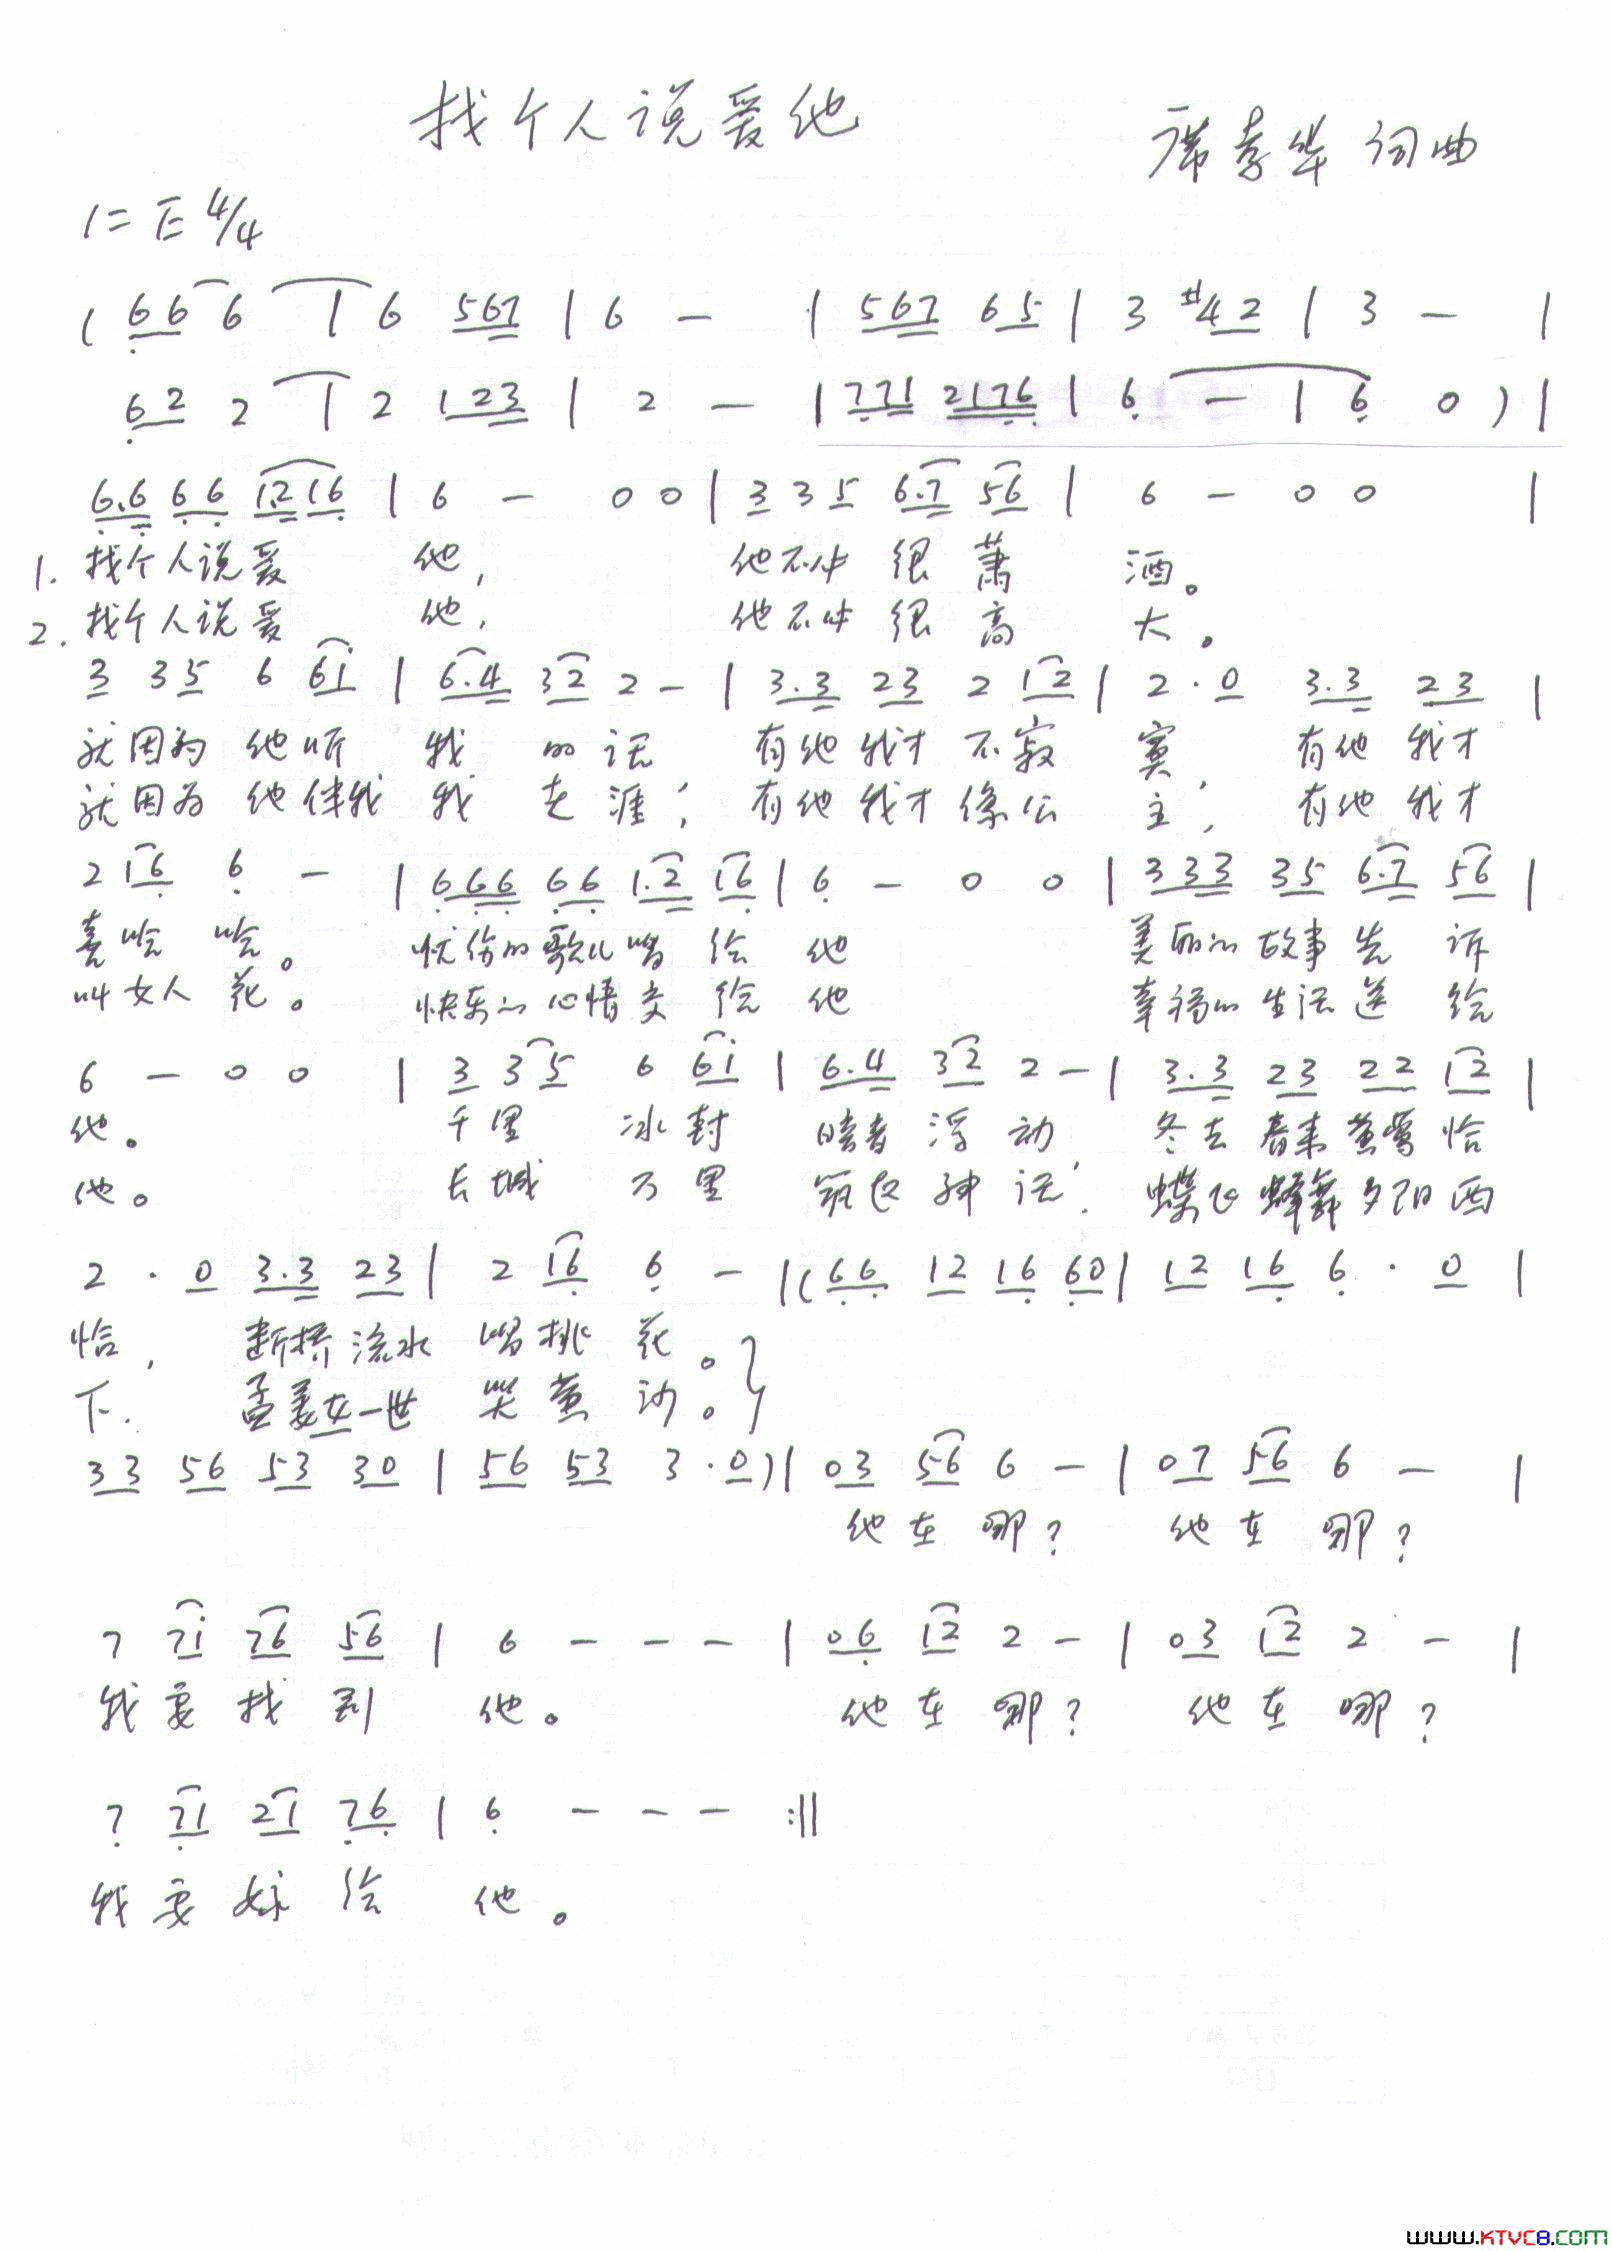 找个人说爱他
席春华 词曲
1=E 4/4
( 66 6 | 6 567 | 6 — | 567 65 | 3 #42 | 3 — |
62 2 | 2 123 | 2 — | 771 2176 | 6 — | 6 0 ) |
6.6 66 1216 | 6 — 0 0 | 3 3 5 6.7 56 | 6 — 0 0 |
1. 找个人说爱 他, 他不必 很 萧 洒。
2. 找个人说爱 他, 他不必 很 高 大。
3 35 6 61 | 6.4 32 2 — | 3.3 23 2 12 | 2 · 0 3.3 23 |
就因为 他听 我 的 话 有他 我才 不寂 寞, 有他 我才
就因为 他伴我 我 走 涯; 有他 我才 像公 主, 有他 我才
2 16 6 — | 666 66 1.2 16 | 6 — 0 0 | 333 35 6.7 56 |
喜哈 哈。 忧伤的歌儿唱 给 他 美丽的 故事 告 诉
叫女人 花。 快乐的心情交 给 他 幸福的 生活 送 给
6 — 0 0 | 3 35 6 61 | 6.4 32 2 — | 3.3 23 22 12 |
他。 千里 冰封 暗香 浮 动, 冬去 春来 黄莺 恰
他。 长城 万里 筑起 神 话. 蝶飞 蜂舞 夕阳 西
2 · 0 3.3 23 | 2 16 6 — | ( 66 12 16 60 | 12 16 6 · 0 |
恰, 断桥流水 唱桃 花。
下. 孟姜女一世 哭黄 沙。
33 56 53 30 | 56 53 3 · 0 ) | 03 56 6 — | 07 56 6 — |
他 在 哪? 他 在 哪?
7 71 76 56 | 6 — — — | 06 12 2 — | 03 12 2 — |
我 要 找 到 他。 他 在 哪? 他 在 哪?
7 71 21 76 | 6 — — — :||
我 要 嫁 给 他。
www.KTVC8.COM